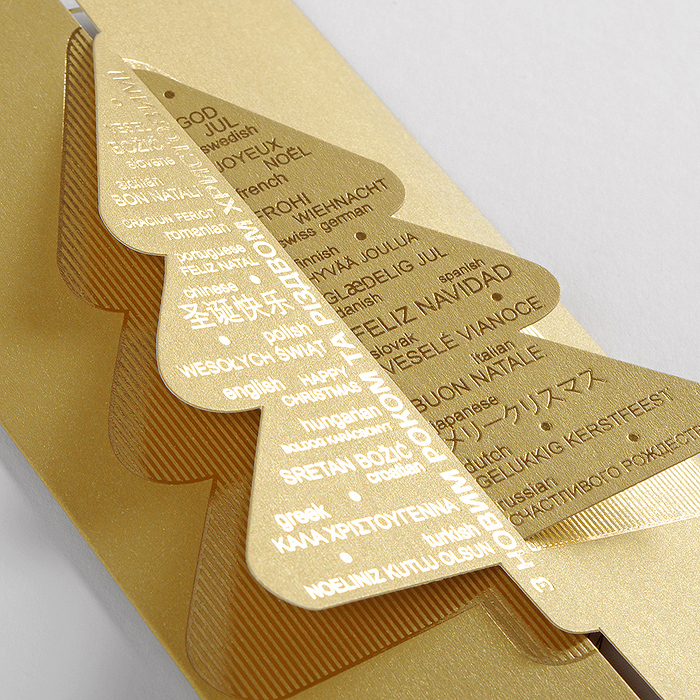 VESEL
BOŽIČ
slovene
sicilian
BON NATALI
CRACIUN FERICIT
romanian
portuguese
FELIZ NATAL
chinese
圣诞快乐
polish
WESOŁYCH ŚWIĄT
english
HAPPY
CHRISTMAS
hungarian
BOLDOG KARÁCSONYT
SRETAN BOŽIĆ
croatian
greek
ΚΑΛΑ ΧΡΙΣΤΟΥΓΕΝΝΑ
turkish
NOELINIZ KUTLU OLSUN
З НОВИМ РОКОМ ТА РІЗДВОМ ХРИСТОВИМ
GOD
JUL
swedish
JOYEUX
NOËL
french
FROHI
WIEHNACHT
swiss german
finnish
HYVÄÄ JOULUA
GLÆDELIG JUL
danish
spanish
FELIZ NAVIDAD
slovak
VESELÉ VIANOCE
italian
BUON NATALE
japanese
メリークリスマス
dutch
GELUKKIG KERSTFEEST
russian
СЧАСТЛИВОГО РОЖДЕСТВ